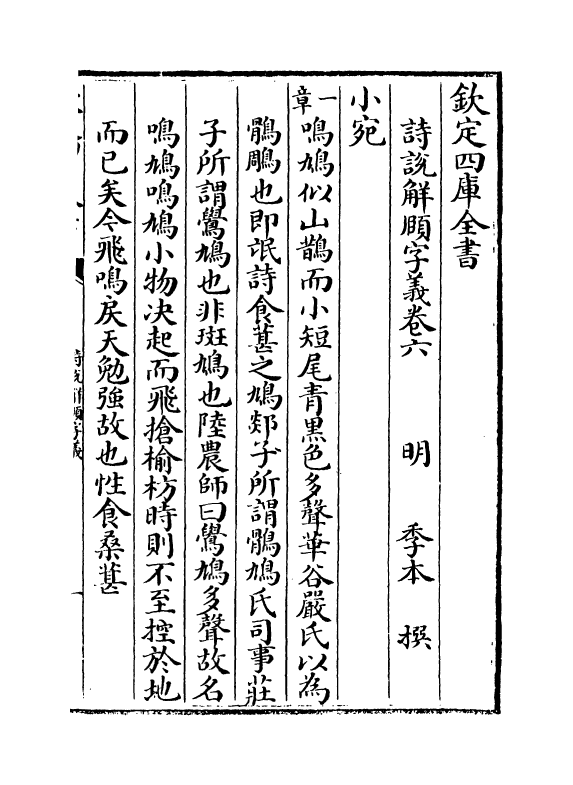 欽定四庫全書
詩說解頤字義卷六　明　季本　撰
小宛
一章鳴鳩似山鵲而小短尾青黑色多聲華谷嚴氏以為
鶻鵰也即氓詩食葚之鳩郯子所謂鶻鳩氏司事莊
子所謂鷽鳩也非斑鳩也陸農師曰鷽鳩多聲故名
鳴鳩鳴鳩小物決起而飛搶榆枋時則不至控於地
而已矣今飛鳴戾天勉強故也性食桑葚
詩說解頤字義